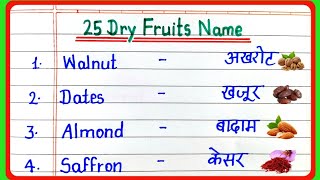 25 Dry Fruits Name
1. Walnut - अखरोट
2. Dates - खजूर
3. Almond - बादाम
4. Saffron - केसर